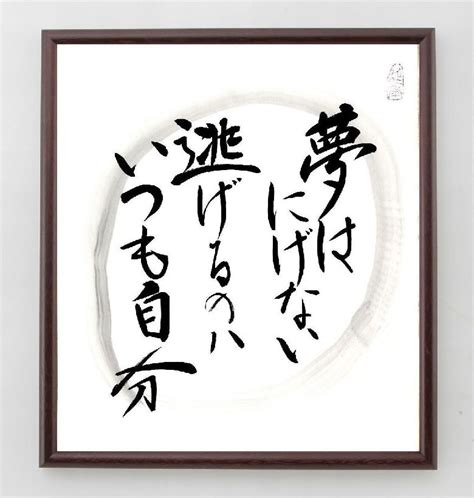 夢は
にげない
逃げるのハ
いつも自分